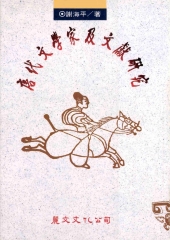 ◎謝海平／著
唐代文學家及文獻研究
麗文文化公司